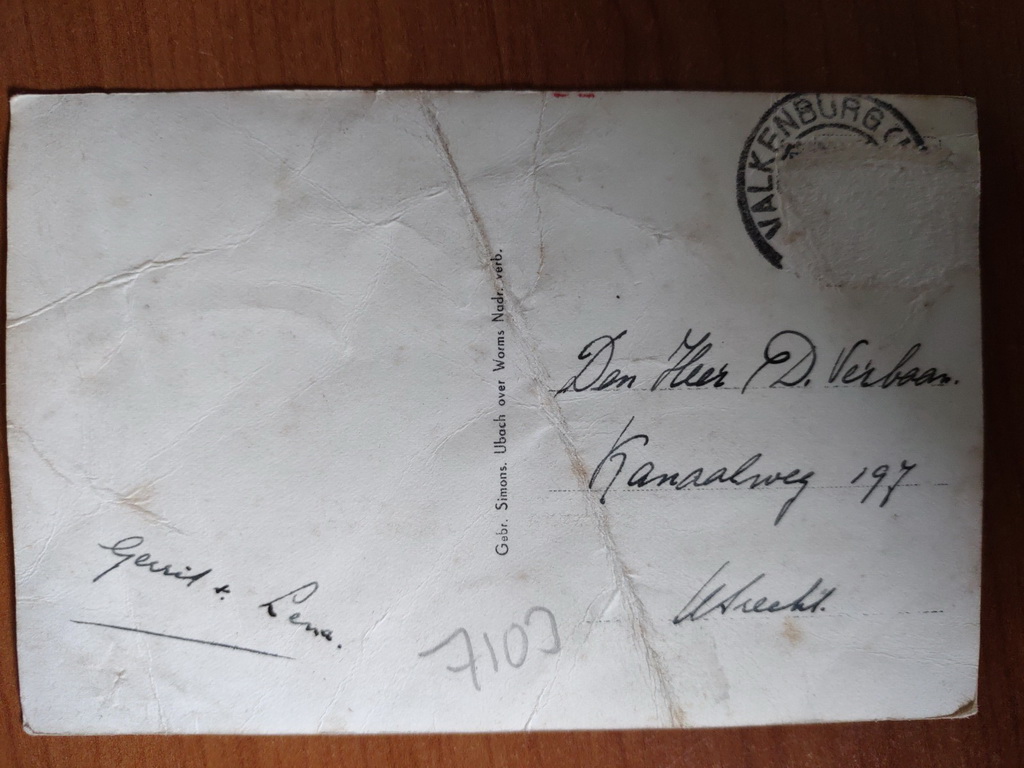 VALKENBURG (
Gebr. Simons. Ubach over Worms Nadr. verb.
Den Heer D. Verbaan.
Kanaalweg 197
Utrecht.
Gerrit + Lena.